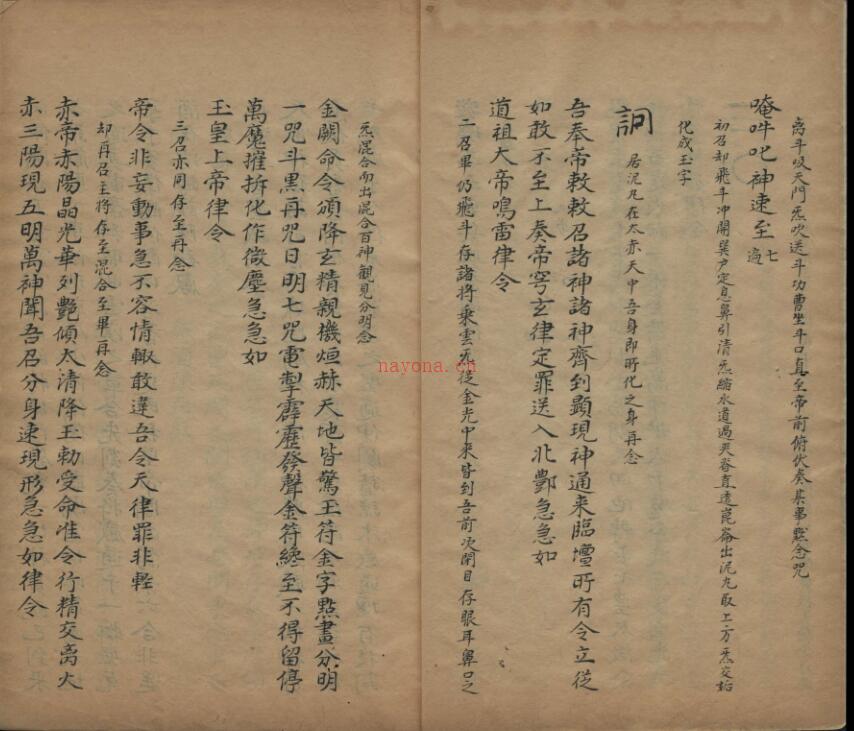 离斗吸天門炁吹送斗功曹坐斗口直至帝前俯伏奏某事默念咒
唵吽叱神速至七遍
初召却飛斗冲開巽户定息鼻引清炁縮水道過夾脊直透崑崙出泥丸取上方炁交姤
化成玉字
詗居泥丸在太赤天中吾身即所化之身再念
吾奉帝敕敕召諸神諸神齊到顯現神通来臨壇所有令立從
如敢不至上奏帝穹玄律定罪送入北酆急急如
道祖大帝鳴雷律令
二召畢仍飛斗存諸將乘雲炁從金光中来皆到吾前次閉目存眼耳鼻口之
炁混合而出混合百神觀見分明念
金闕命令頒降玄精親機烜赫天地皆驚玉符金字點畫分明
一咒斗黑再咒日明七咒電掣霹靂發聲金符纔至不得留停
萬魔摧拆化作微塵急急如
玉皇上帝律令
三召亦同存至再念
帝令非妄動事急不容情輙敢違吾令天律罪非輕
却再召主將存至混合至畢再念
赤帝赤陽晶光華列艷傾太清降玉勅受命准令行精交离火
赤三陽現五明萬神聞吾召分身速現形急急如律令
nayona.cn